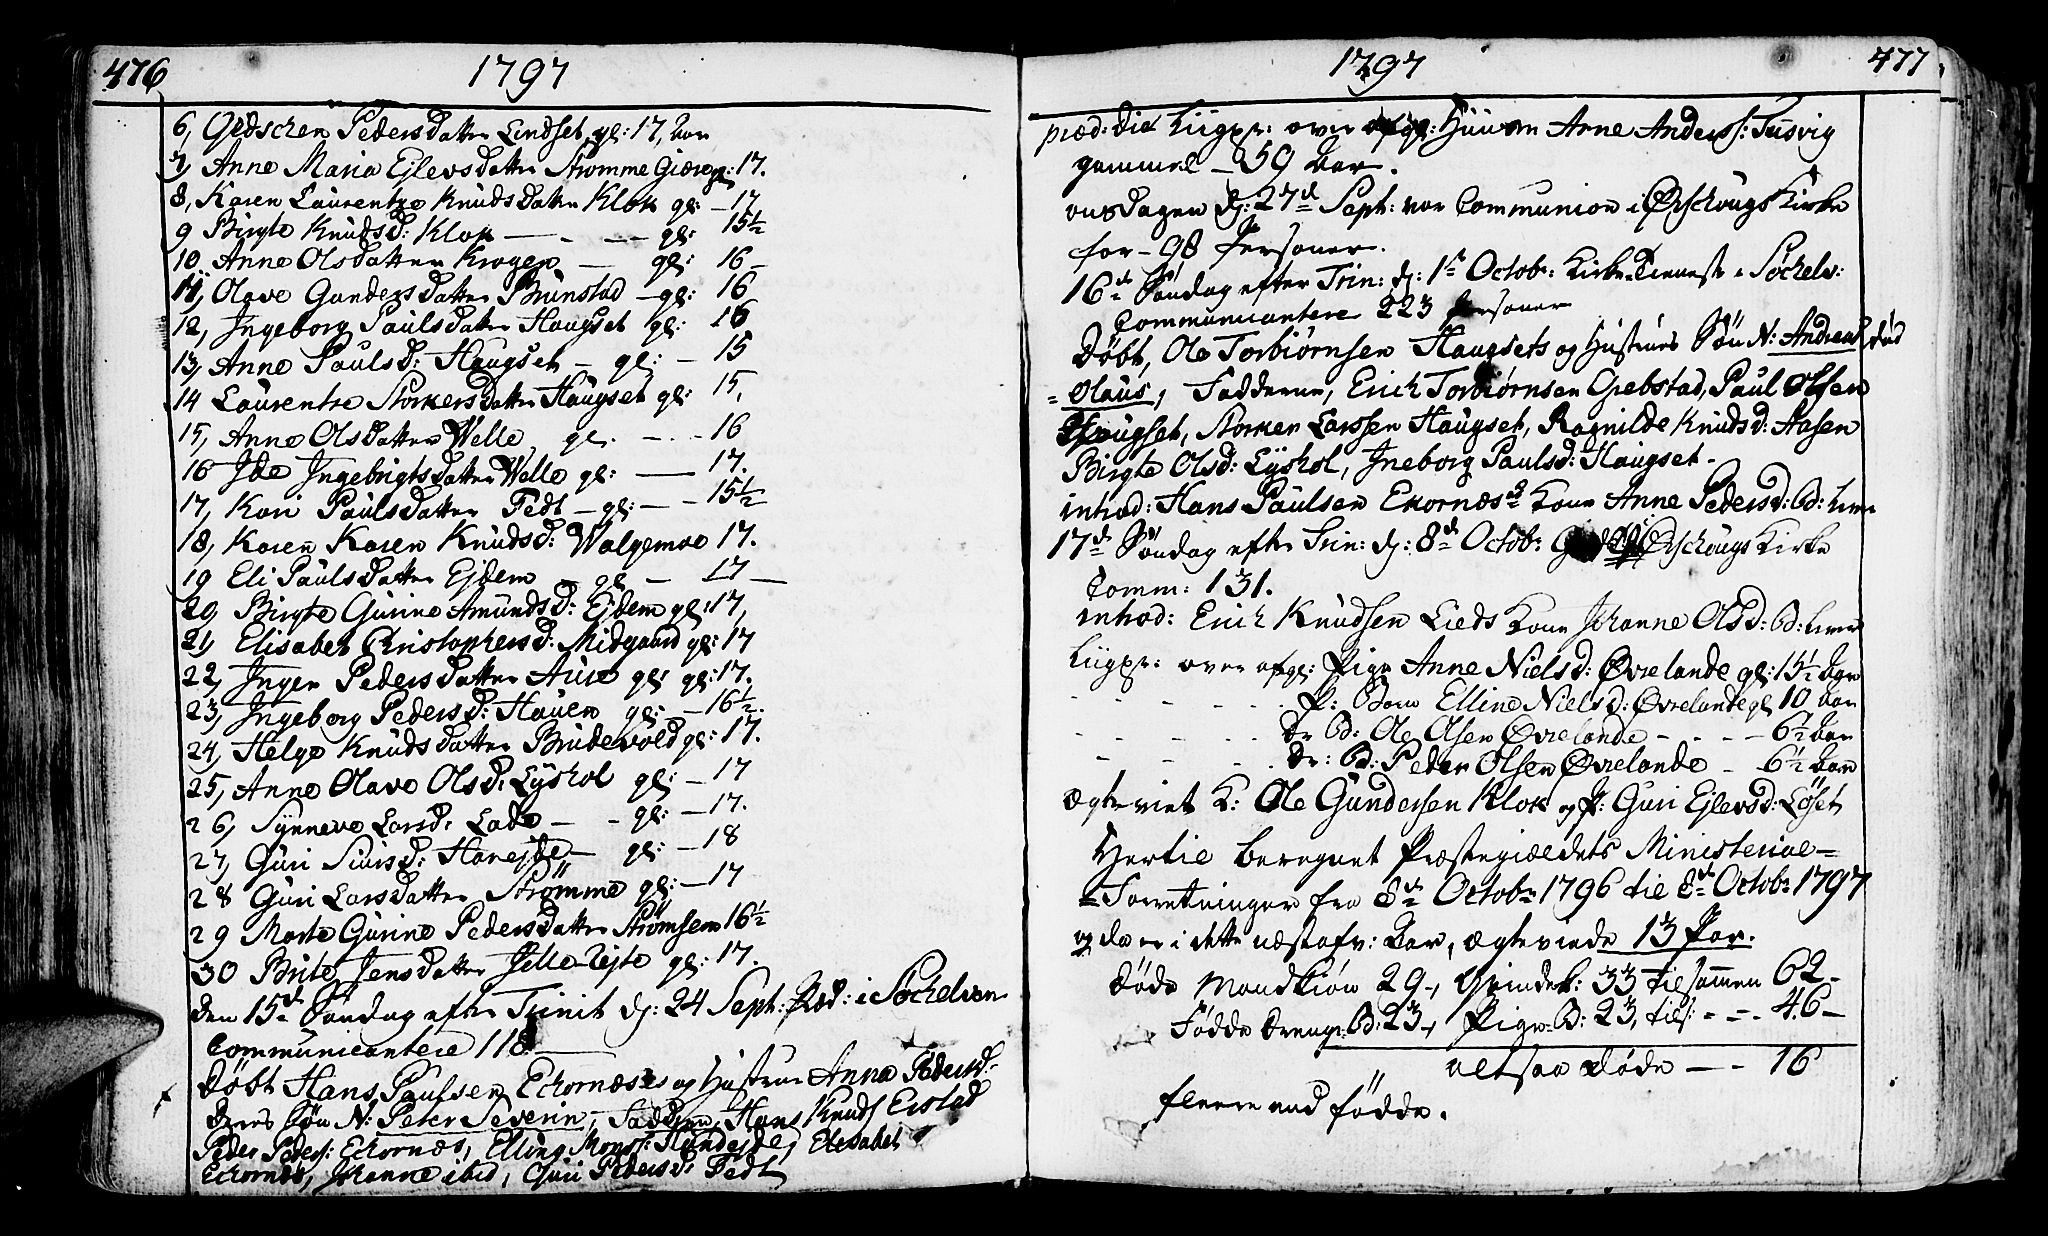 476
1797
6, Gidschen Peders Datter Lindset gl: 17, Aar
7, Anne Maria Ejlers datter Strømme Giære gl: 17.
8, Karen Laurentze Knuds Datter Klok gl: - 17
9 Birgte Knuds D: Klok - - - gl: 15½
10 Anne Olsdatter Krogen - gl: 16 -
11, Olave Gunders Datter Brunstad - gl: 16
12, Ingeborg Pauls Datter Haugset gl: 16
13, Anne Pauls d: Haugset - gl: - 15
14 Laurentze Storkers Datter Haugset gl: 15,
15, Anne Ols Datter Welle gl: - - - 16
16 Ide Ingebrigts datter Welle gl: - 17.
17, Kari Pauls datter Fedt - gl: - - 15½
18, Karen Karen Knuds d: Walgemoe 17.
19 Eli Pauls Datter Ejdem - gl - 17 -
20 Birgte Gurine Amunds d: Ejdem gl: 17,
21, Elisabet Christophers d: Midgaard gl: 17
22, Inger Peders datter Aure gl: gl: 17.
23, Ingeborg Peders d: Hauen gl: - 16½.
24, Helge Knuds datter Brudevold gl: 17.
25, Anne Olave Ols d: Lyshol gl: - 17
26, Synneve Lars d: Lade - - gl: - 17.
27, Guri Siurs d: Hanejde - gl: - 18
28 Guri Lars datter Strömme gl: - 17
29 Marte Gurine Peders datter Strömsem 16½
30 Brite Jens datter Jelle Tejte gl: 17.
den 15de Söndag efter Trinit d: 24 Sept: Præd: i Søchelven
Communicantere 118 -
Döbt Hans Paulsen Echornæses og Hustrue Anna Peders d:
deres Sön N: Peter Severin, Fadderne, Hans Knuds Eistad
Peder Peders: Echornæs, Elling Mons: Hundejde, Elisabet
Echornæs, Johanne ibid, Guri Peders d: Fedt
1797
477
præd: die Liigpr: over afg: Huusm Arne Anders: Tusvig
gammel - 59 Aar.
onsdagen d: 27de Sept: var Communion i Ørschougs Kirke
for - 98 Personer.
16de Söndag efter Trin: d: 1ste Octob: Kirke-Tieneste i Söchelv:
Communicantere 223 Personer
Döbt, Ole Torbiörnsen Haugsets og Hustrues Sön N: Andreas død
= Olaus, Fadderne, Erich Torbiörnsen Grebstad, Paul Olsen
Haugset, Storker Larssen Haugset, Ragnilde Knuds d: Aasen
Birgte Ols d: Lyshol, Ineborg Pauls d: Haugset -
introd: Hans Paulsen Ekornæses Kone Anne Peders d: Bd: lever
17de Söndag efter Trin: d: 8de Octob: Ørschougs Kirke
Comm: 131.
introd: Erich Knudsen Lieds Kone Johanne Ols D: Bd: lever
Liigpr: over afg: Pige Anne Niels d: Øvrelande gl: 15½ Aar
- - - - - P: Barn Elline Niels d: Øvrelande gl 10 Aar
- - - - - Dr Bd: Ole Olsen Øvrelande - - - - 6½ Aar
- - - - - Dr: Bd: Peder Olsen Øvrelande - 6½ Aar
Ægteviet K: Ole Gundersen Klok og P: Guri Ejlevs d: Löset
Hertil beregnet Præstegieldets Ministerial=
=Forretninger fra 8de Octobr 1796 til 8de Octobr 1797
og da er i dette næstafv: Aar, ægteviede 13 Par.
Döde Mandkiön 29, Qvindek: 33 tilsammen 62 -
Födde Drenge B: 23, Pige B: 23, tils: - - - 46 -
altsaa döde - - 16
fleere end födde.